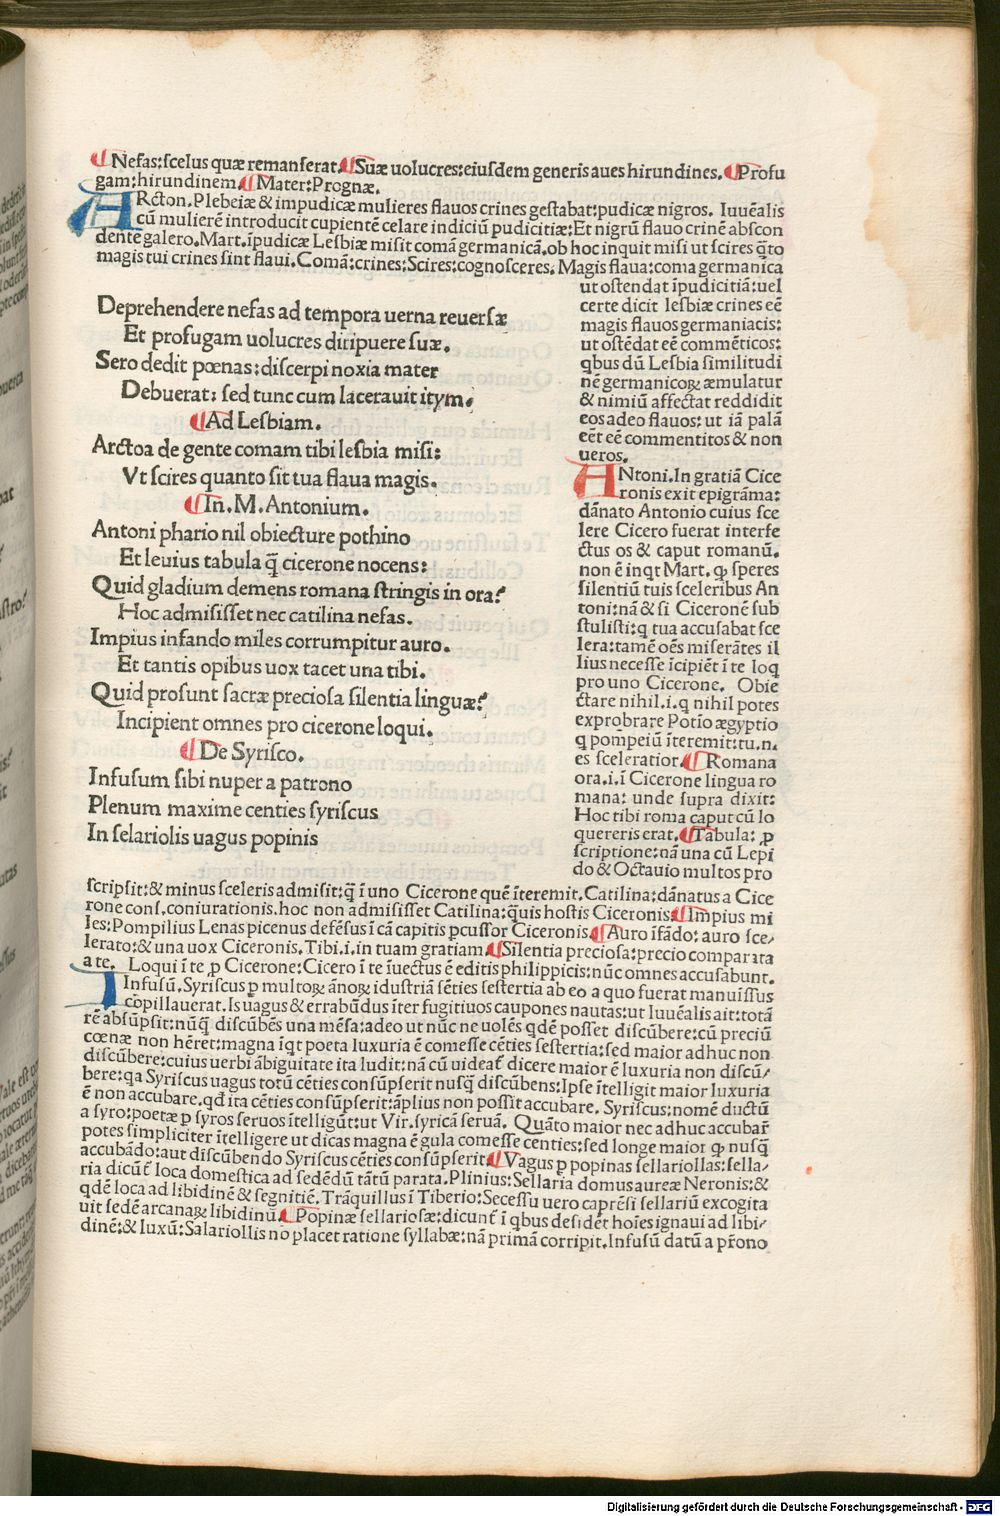 ¶Nefas:scelus quæ remanserat.¶Suæ uolucres:eiusdem generis aues hirundines.¶Profu
gam:hirundinem.¶Mater:Prognæ.
ARcton.Plebeiæ & impudicæ mulieres flauos crines gestabāt:pudicæ nigros. Iuuēalis
cū mulierē introducit cupientē celare indiciū pudicitiæ:Et nigrū flauo crinē abscon
dente galero.Mart.īpudicæ Lesbiæ misit comā germanicā.ob hoc inquit misi ut scires q̄to
magis tui crines sint flaui.Comā:crines:Scires:cognosceres. Magis flaua:coma germanica
ut ostendat īpudicitiā:uel
certe dicit lesbiæ crines eē
magis flauos germaniacis:
ut ostēdat eē commēticos:
qbus dū Lesbia similitudi
nē germanicoꝝ æmulatur
& nimiū affectat reddidit
eos adeo flauos:ut iā palā
eēt eē commentitos & non
ueros.
Deprehendere nefas ad tempora uerna reuersæ
Et profugam uolucres diripuere suæ.
Sero dedit pœnas:discerpi noxia mater
Debuerat: sed tunc cum lacerauit itym.
¶Ad Lesbiam.
Arctoa de gente comam tibi lesbia misi:
Vt scires quanto sit tua flaua magis.
¶In.M.Antonium.
Antoni phario nil obiecture pothino
Et leuius tabula q̄ cicerone nocens:
Quid gladium demens romana stringis in ora?
Hoc admisisset nec catilina nefas.
Impius infando miles corrumpitur auro.
Et tantis opibus uox tacet una tibi.
Quid prosunt sacræ preciosa silentia linguæ?
Incipient omnes pro cicerone loqui.
¶De Syrisco.
Infusum sibi nuper a patrono
Plenum maxime centies syriscus
In selariolis uagus popinis
ANtoni.In gratiā Cice
ronis exit epigrāma:
dānato Antonio cuius sce
lere Cicero fuerat interfe
ctus os & caput romanū.
non ē inqt Mart. ꝙ speres
silentiū tuis sceleribus An
toni:nā & si Ciceronē sub
stulisti:q tua accusabat sce
lera:tamē oēs miserātes il
lius necesse īcipiēt ī te loq
pro uno Cicerone. Obie
ctare nihil.i.q nihil potes
exprobrare Potio ægyptio
q pompeiū īteremit:tu.n.
es sceleratior.¶Romana
ora.i.ī Cicerone lingua ro
mana: unde supra dixit:
Hoc tibi roma caput cū lo
quereris erat.¶Tabula: ꝓ
scriptione:nā una cū Lepi
do & Octauio multos pro
scripsit:& minus sceleris admisit:q̄ ī uno Cicerone quē īteremit.Catilina:dānatus a Cice
rone cons.coniurationis.hoc non admisisset Catilina:q̄uis hostis Ciceronis.¶Impius mi
les:Pompilius Lenas picenus defēsus ī cā capitis ꝑcussor Ciceronis.¶Auro īfādo: auro sce-
lerato:& una uox Ciceronis.Tibi.i.in tuam gratiam.¶Silentia preciosa:precio comparata
a te. Loqui ī te ꝓ Cicerone:Cicero ī te īuectus ē editis philippicis:nūc omnes accusabunt.
INfusū.Syriscus ꝓ multoꝝ ānoꝝ īdustriā sēties sestertia ab eo a quo fuerat manuīssus
cōpillauerat.Is uagus & errabūdus īter fugitiuos caupones nautas:ut Iuuēalis ait:totā
rē absūpsit:nūq̄ discūbēs una mēsa:adeo ut nūc ne uolēs qdē posset discūbere:cū preciū
cœnæ non hēret:magna īqt poeta luxuria ē comesse cēties sestertia:sed maior adhuc non
discūbere:cuius uerbi ābiguitate ita ludit:nā cū uideaī dicere maior ē luxuria non discū/
bere:qa Syriscus uagus totū cēties consūpserit nusq̄ discūbens:Ipse ītelligit maior luxuria
ē non accubare.qd ita cēties consūpserit:āplius non possit accubare. Syriscus:nomē ductū
a syro:poetæ ꝓ syros seruos ītelligūt:ut Vir.syricā seruā. Quāto maior nec adhuc accubaŕ
potes simpliciter ītelligere ut dicas magna ē gula comesse centies:sed longe maior ꝙ nusq̄
accubādo:aut discūbendo Syriscus cēties consūpserit.¶Vagus ꝑ popinas sellariollas:sella/
ria dicūt loca domestica ad sedēdū tātū parata.Plinius:Sellaria domus aureæ Neronis:&
qdē loca ad libidinē & segnitiē.Trāquillus ī Tiberio:Secessu uero caprēsi sellariū excogita
uit sedē arcanaꝝ libidinū.¶Popinæ sellariosæ:dicunt ī qbus desidēt hoīes ignaui ad libi/
dinē:& luxū:Salariollis nō placet ratione syllabæ:nā primā corripit.Infusū datū a pr̄ono
Digitalisierung gefördert durch die Deutsche Forschungsgemeinschaft - DFG